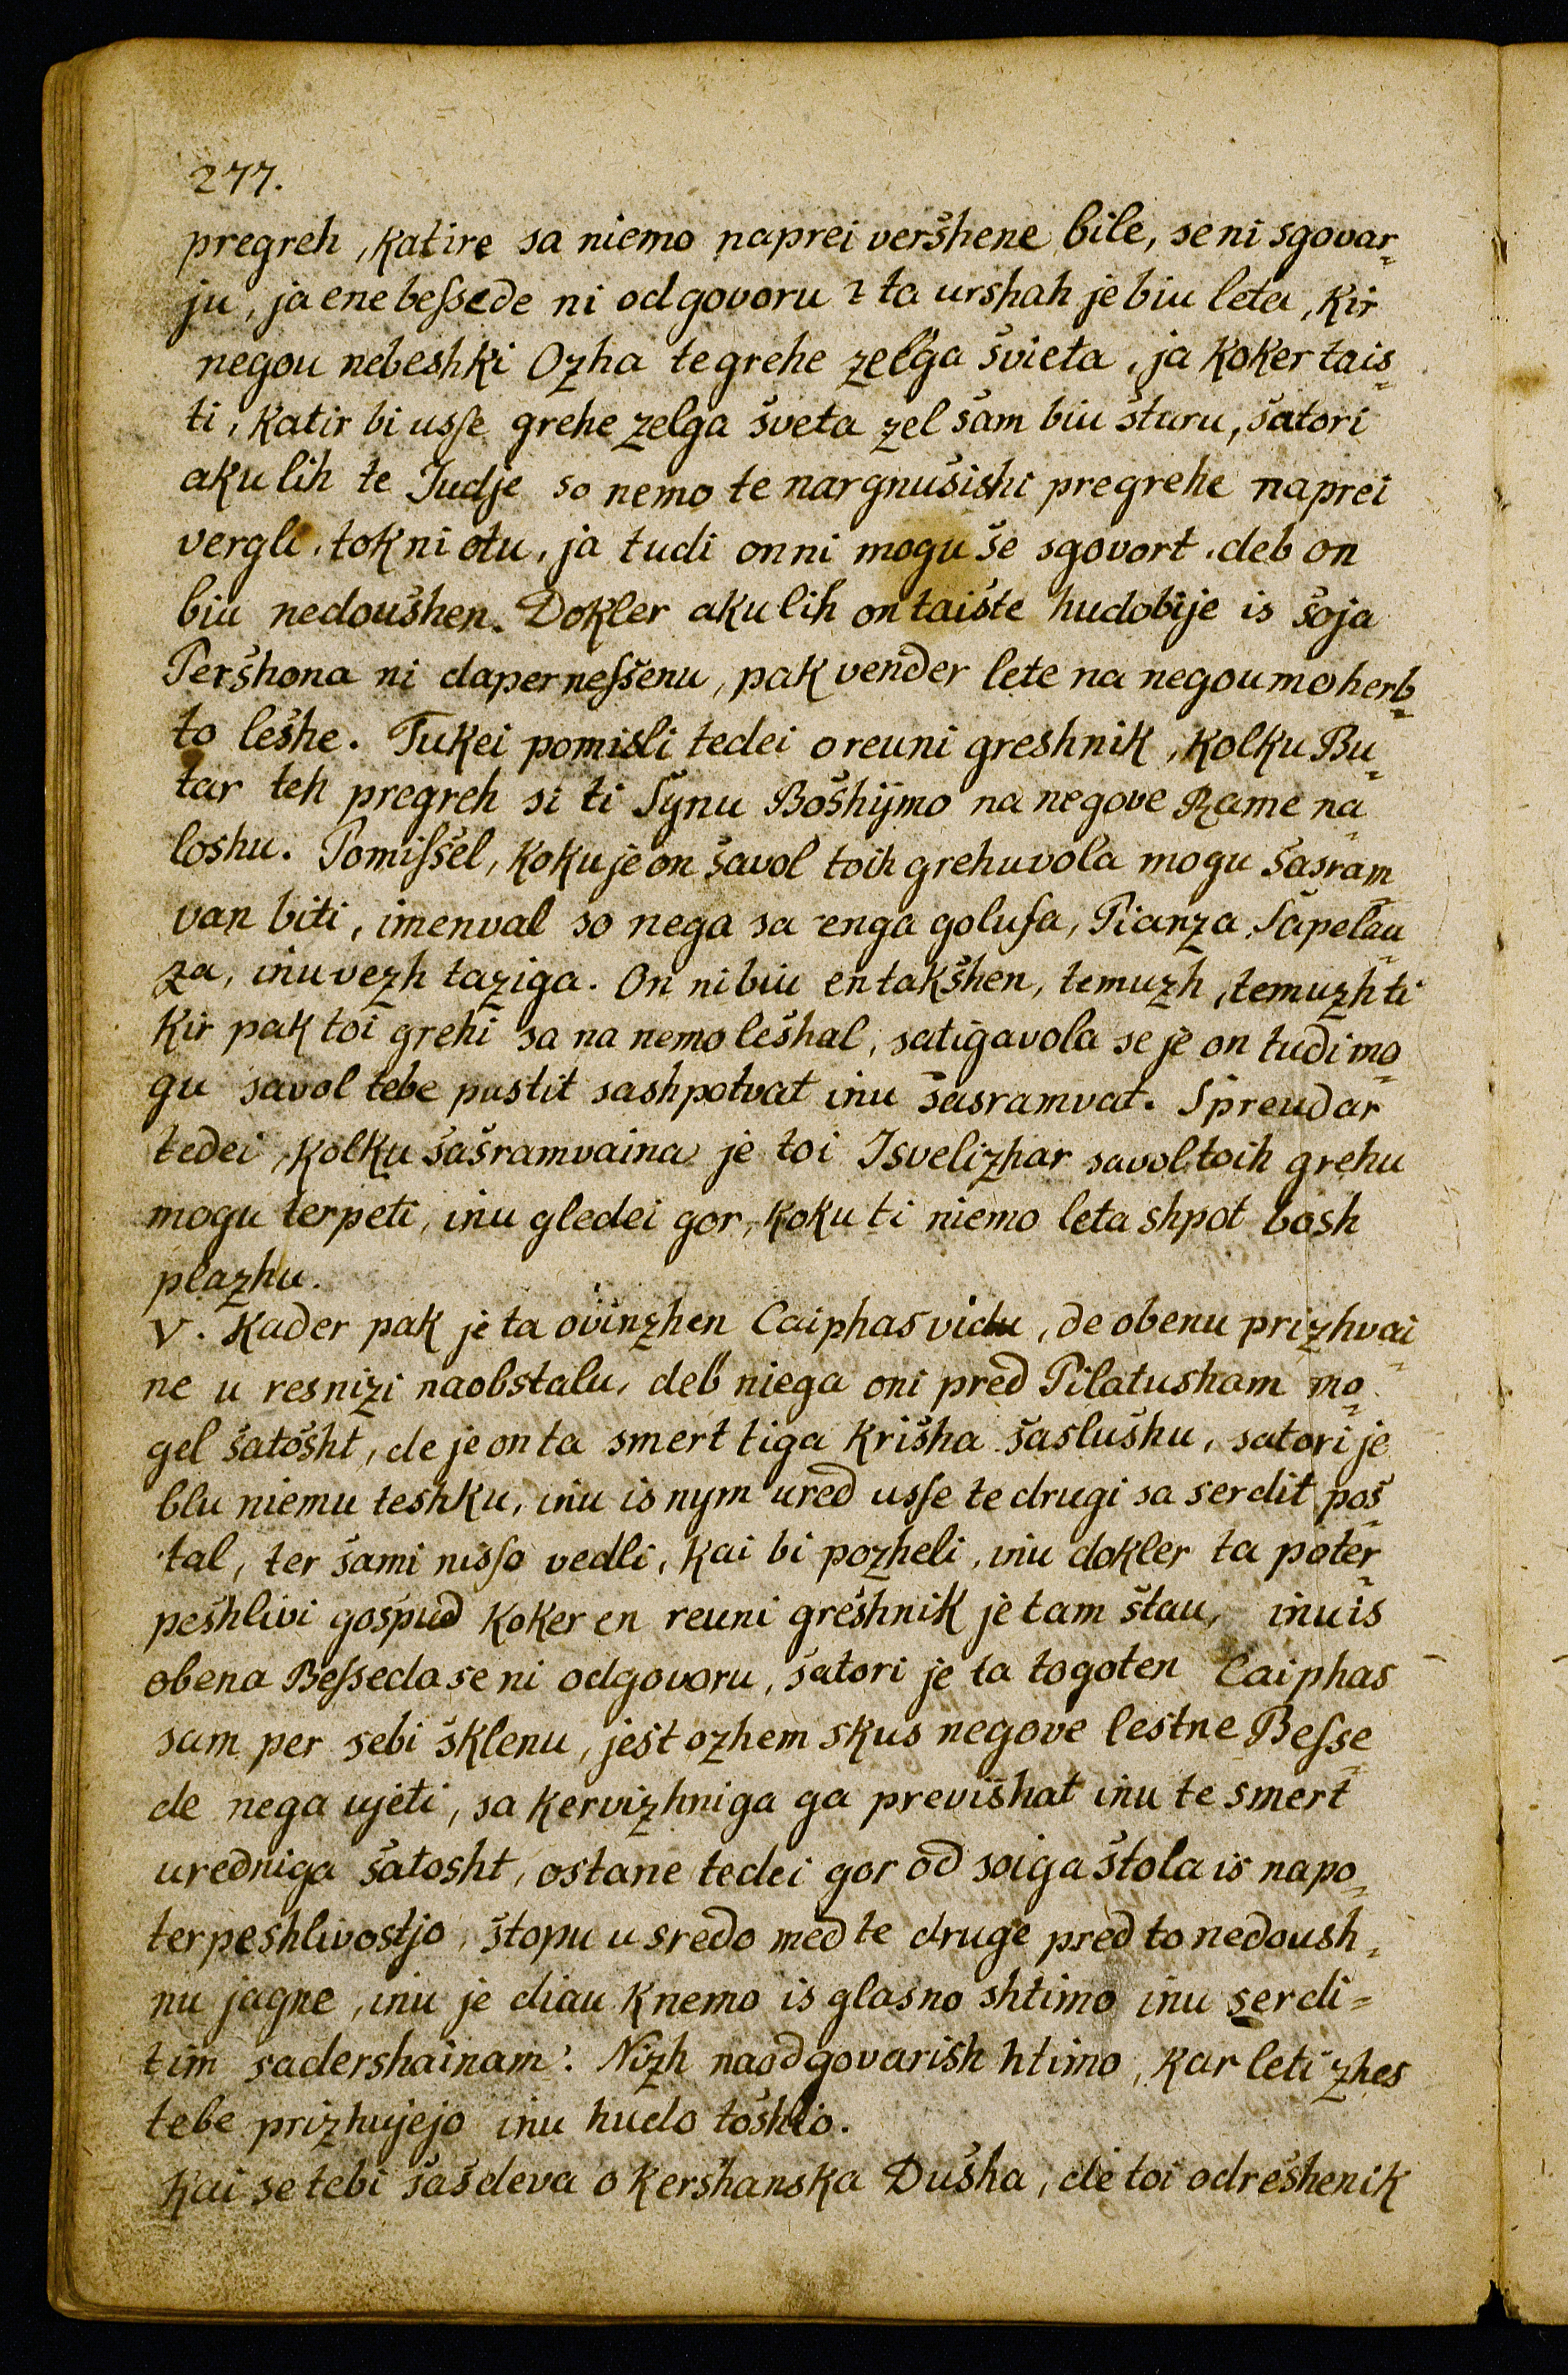 277.
pregreh, katire sa niemo naprei veršhene bile, se ni sgovar=
ju, ja ene beſsede ni odgovoru ? ta urshah je biu leta, kir
negou nebeshki Ozha te grehe zelga švieta, ja koker tais=
ti, katir bi usſe grehe zelga šveta zel šam biu šturu, šatori
aku lih te Iudje so nemo te nargnušishi pregrehe naprei
vergli, tok ni otu, ja tudi on ni mogu še sgovort, deb on
biu nedoušhen. Dokler aku lih on taište hudobije is šoja
Peršhona ni dapernesšenu, pak vender lete na negoumo herb=
to lešhe. Tukei pomisli tedei o reuni greshnik, kolku Bu=
tar teh pregreh si ti Synu Bošhijmo na negove Rame na=
loshu. Pomiſšel, koku je on šavol toih grehu vola mogu šasram=
van biti, imenval so nega sa enga goluſa, Pianza, Šapelau=
za, inu vezh taziga. On ni biu en takšhen, temuzh, temuzh ti
kir pak toi grehi sa na nemo lešhal, satigavola se je on tudi mo=
gu savol tebe pustit sashpotvat inu šasramvat. Spreudar
tedei, kolku šašramvaina je toi Isvelizhar savol toih grehu
mogu terpeti, inu gledei gor, koku ti niemo leta shpot bosh
plazhu.
V. Kader pak je ta ovinzhen Caiphas vidu, de obenu prizhvai=
ne u resnizi naobstalu, deb niega oni pred Pilatusham mo=
gel šatošht, de je on ta smert tiga krišha šaslušhu, satori je
blu niemu teshku, inu is nym ured usſe te drugi sa serdit poš=
tal, ter šami nisſo vedli, kai bi pozheli, inu dokler ta poter=
pešhlivi gošpud koker en reuni grešhnik je tam štau, inu is
obena Beſseda se ni odgovoru, šatori je ta togoten Caiphas
sam per sebi šklenu, ješt ozhem skus negove lestne Beſse=
de nega ujeti, sa kervizhniga ga previšhat inu te smert
uredniga šatosht, ostane tedei gor od soiga štola is napo=
terpeshlivostjo, štopu u sredo med te druge pred to nedoush=
nu jagne, inu je diau k nemo is glasno shtimo inu serdi=
tim sadershainam: Nizh naodgovarish htimo, kar leti zhes
tebe prizhujejo inu hudo tošhio.
Kai se tebi šašdeva o keršhanska Dušha, de toi odrešhenik